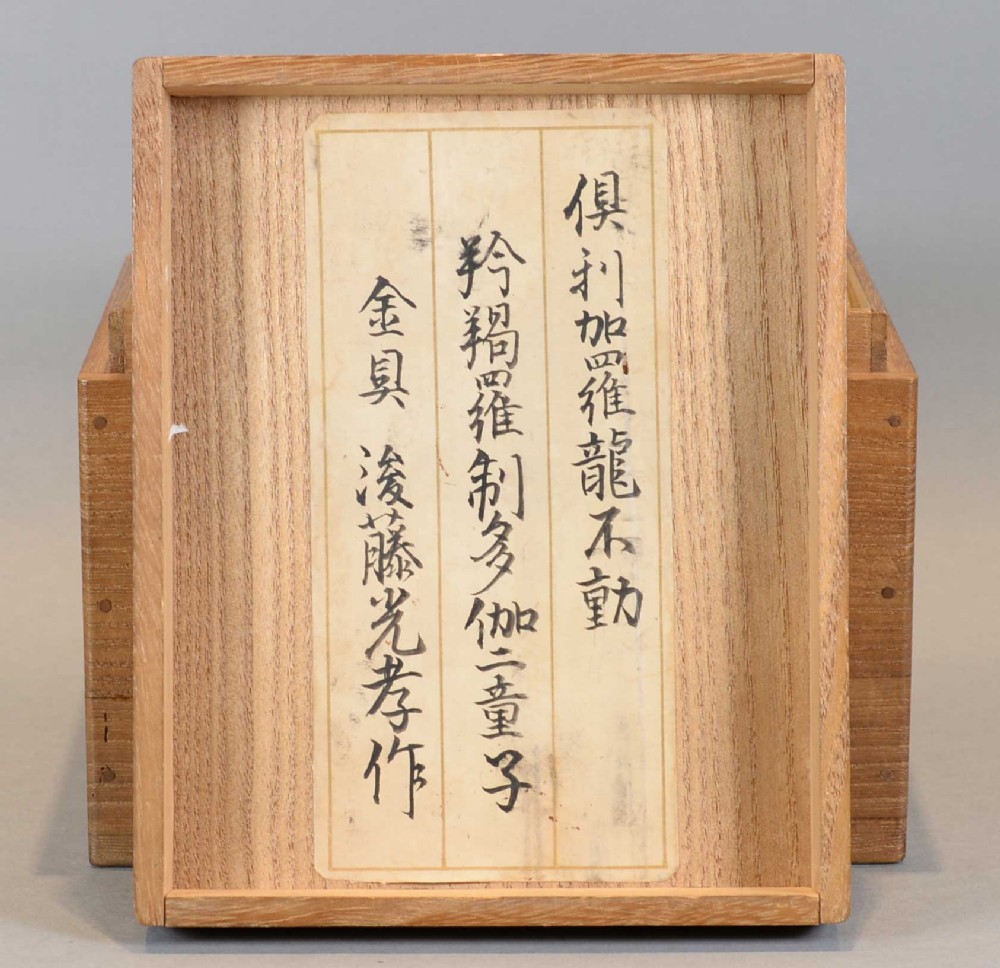 倶利加羅龍不動
羚羯羅制多伽二童子
金具 後藤光孝作